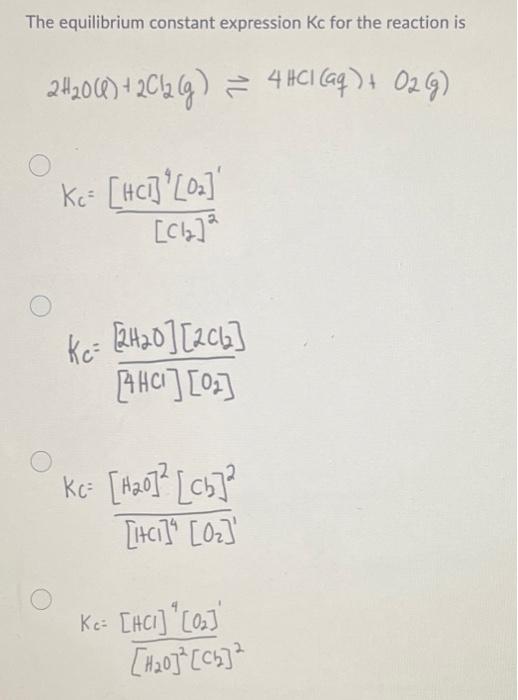 The equilibrium constant expression Kc for the reaction is
2H₂O(l) + 2Cl₂(g) ⇌ 4HCl(aq) + O₂(g)
Kc= [HCl]⁴[O₂]¹
[Cl₂]²
Kc= [2H₂O][2Cl₂]
[4HCl][O₂]
Kc= [H₂O]²[Cl₂]²
[HCl]⁴[O₂]¹
Kc= [HCl]⁴[O₂]¹
[H₂O]²[Cl₂]²